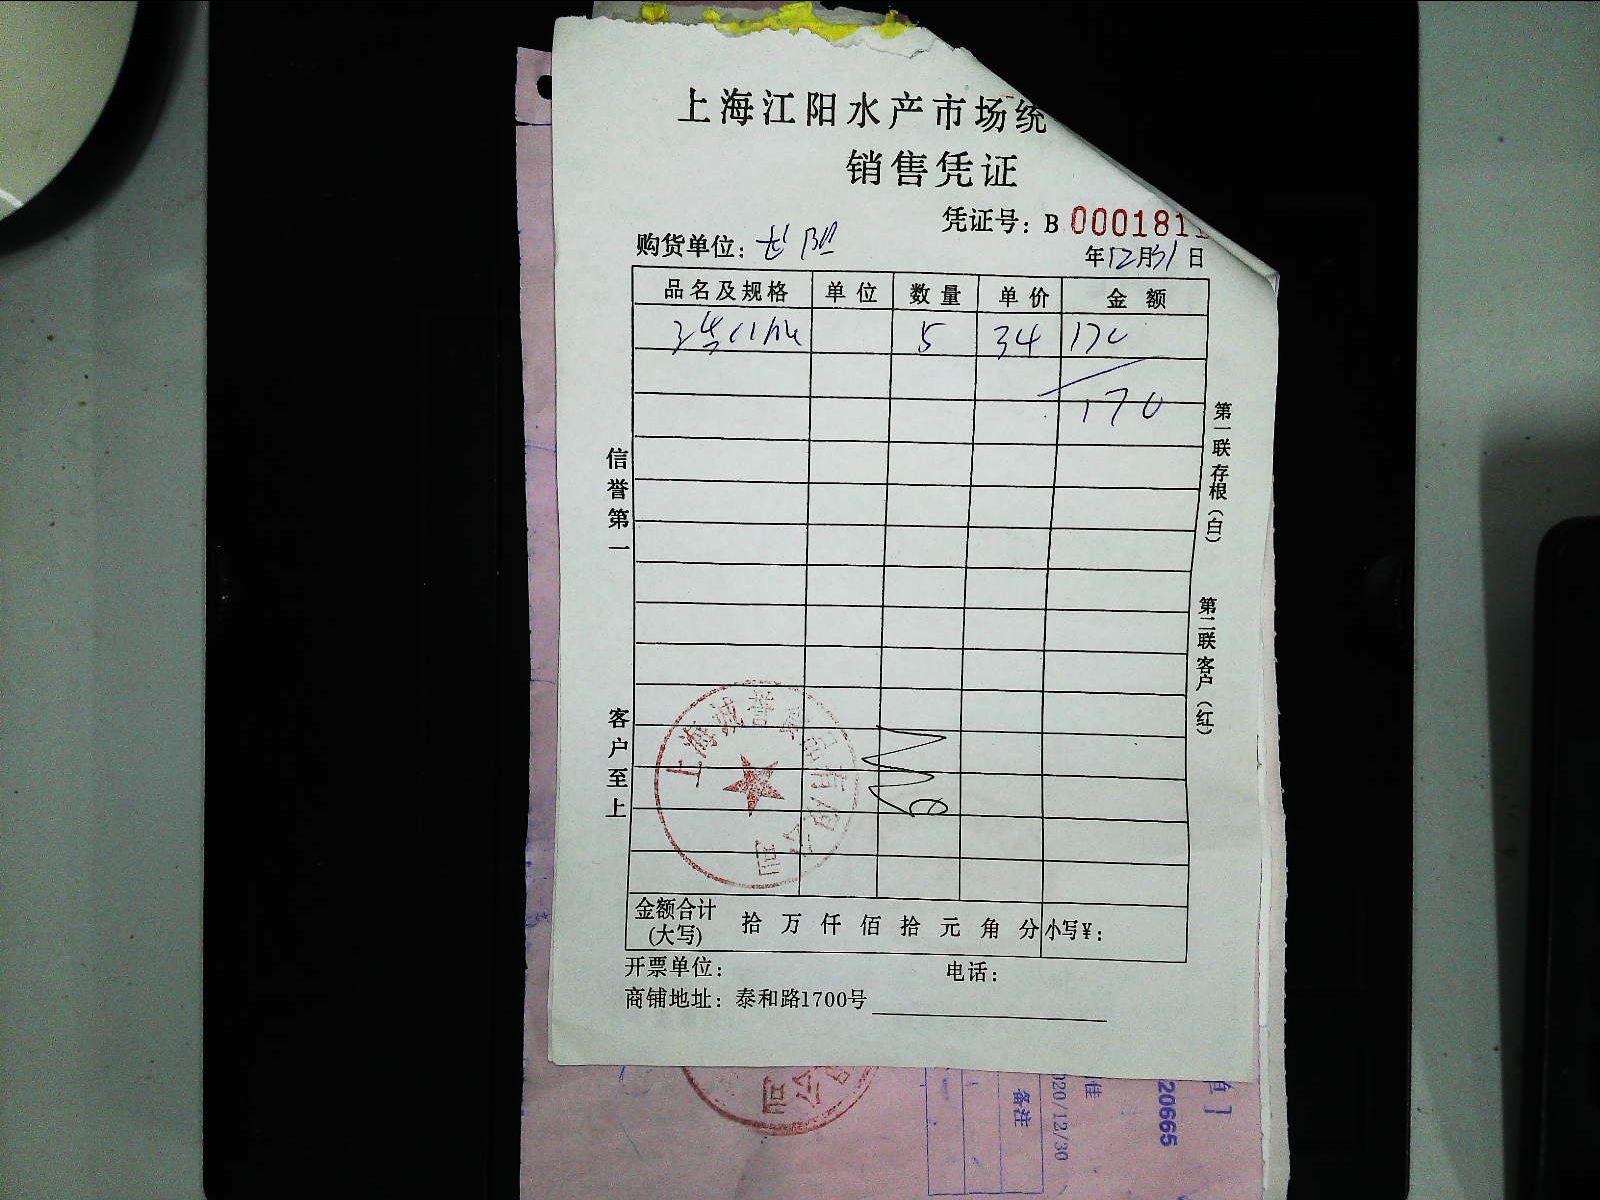 上海江阳水产市场统
销售凭证
凭证号：B 000181
购货单位：
年12月31日
品名及规格 单位 数量 单价 金额
5 34 170
170
信誉第一
客户至上
第一联存根（白）
第二联客户（红）
上海 有限公司
金额合计(大写) 拾 万 仟 佰 拾 元 角 分 小写¥：
开票单位： 电话：
商铺地址：泰和路1700号
司公
备注
020/12/30
佳
20665